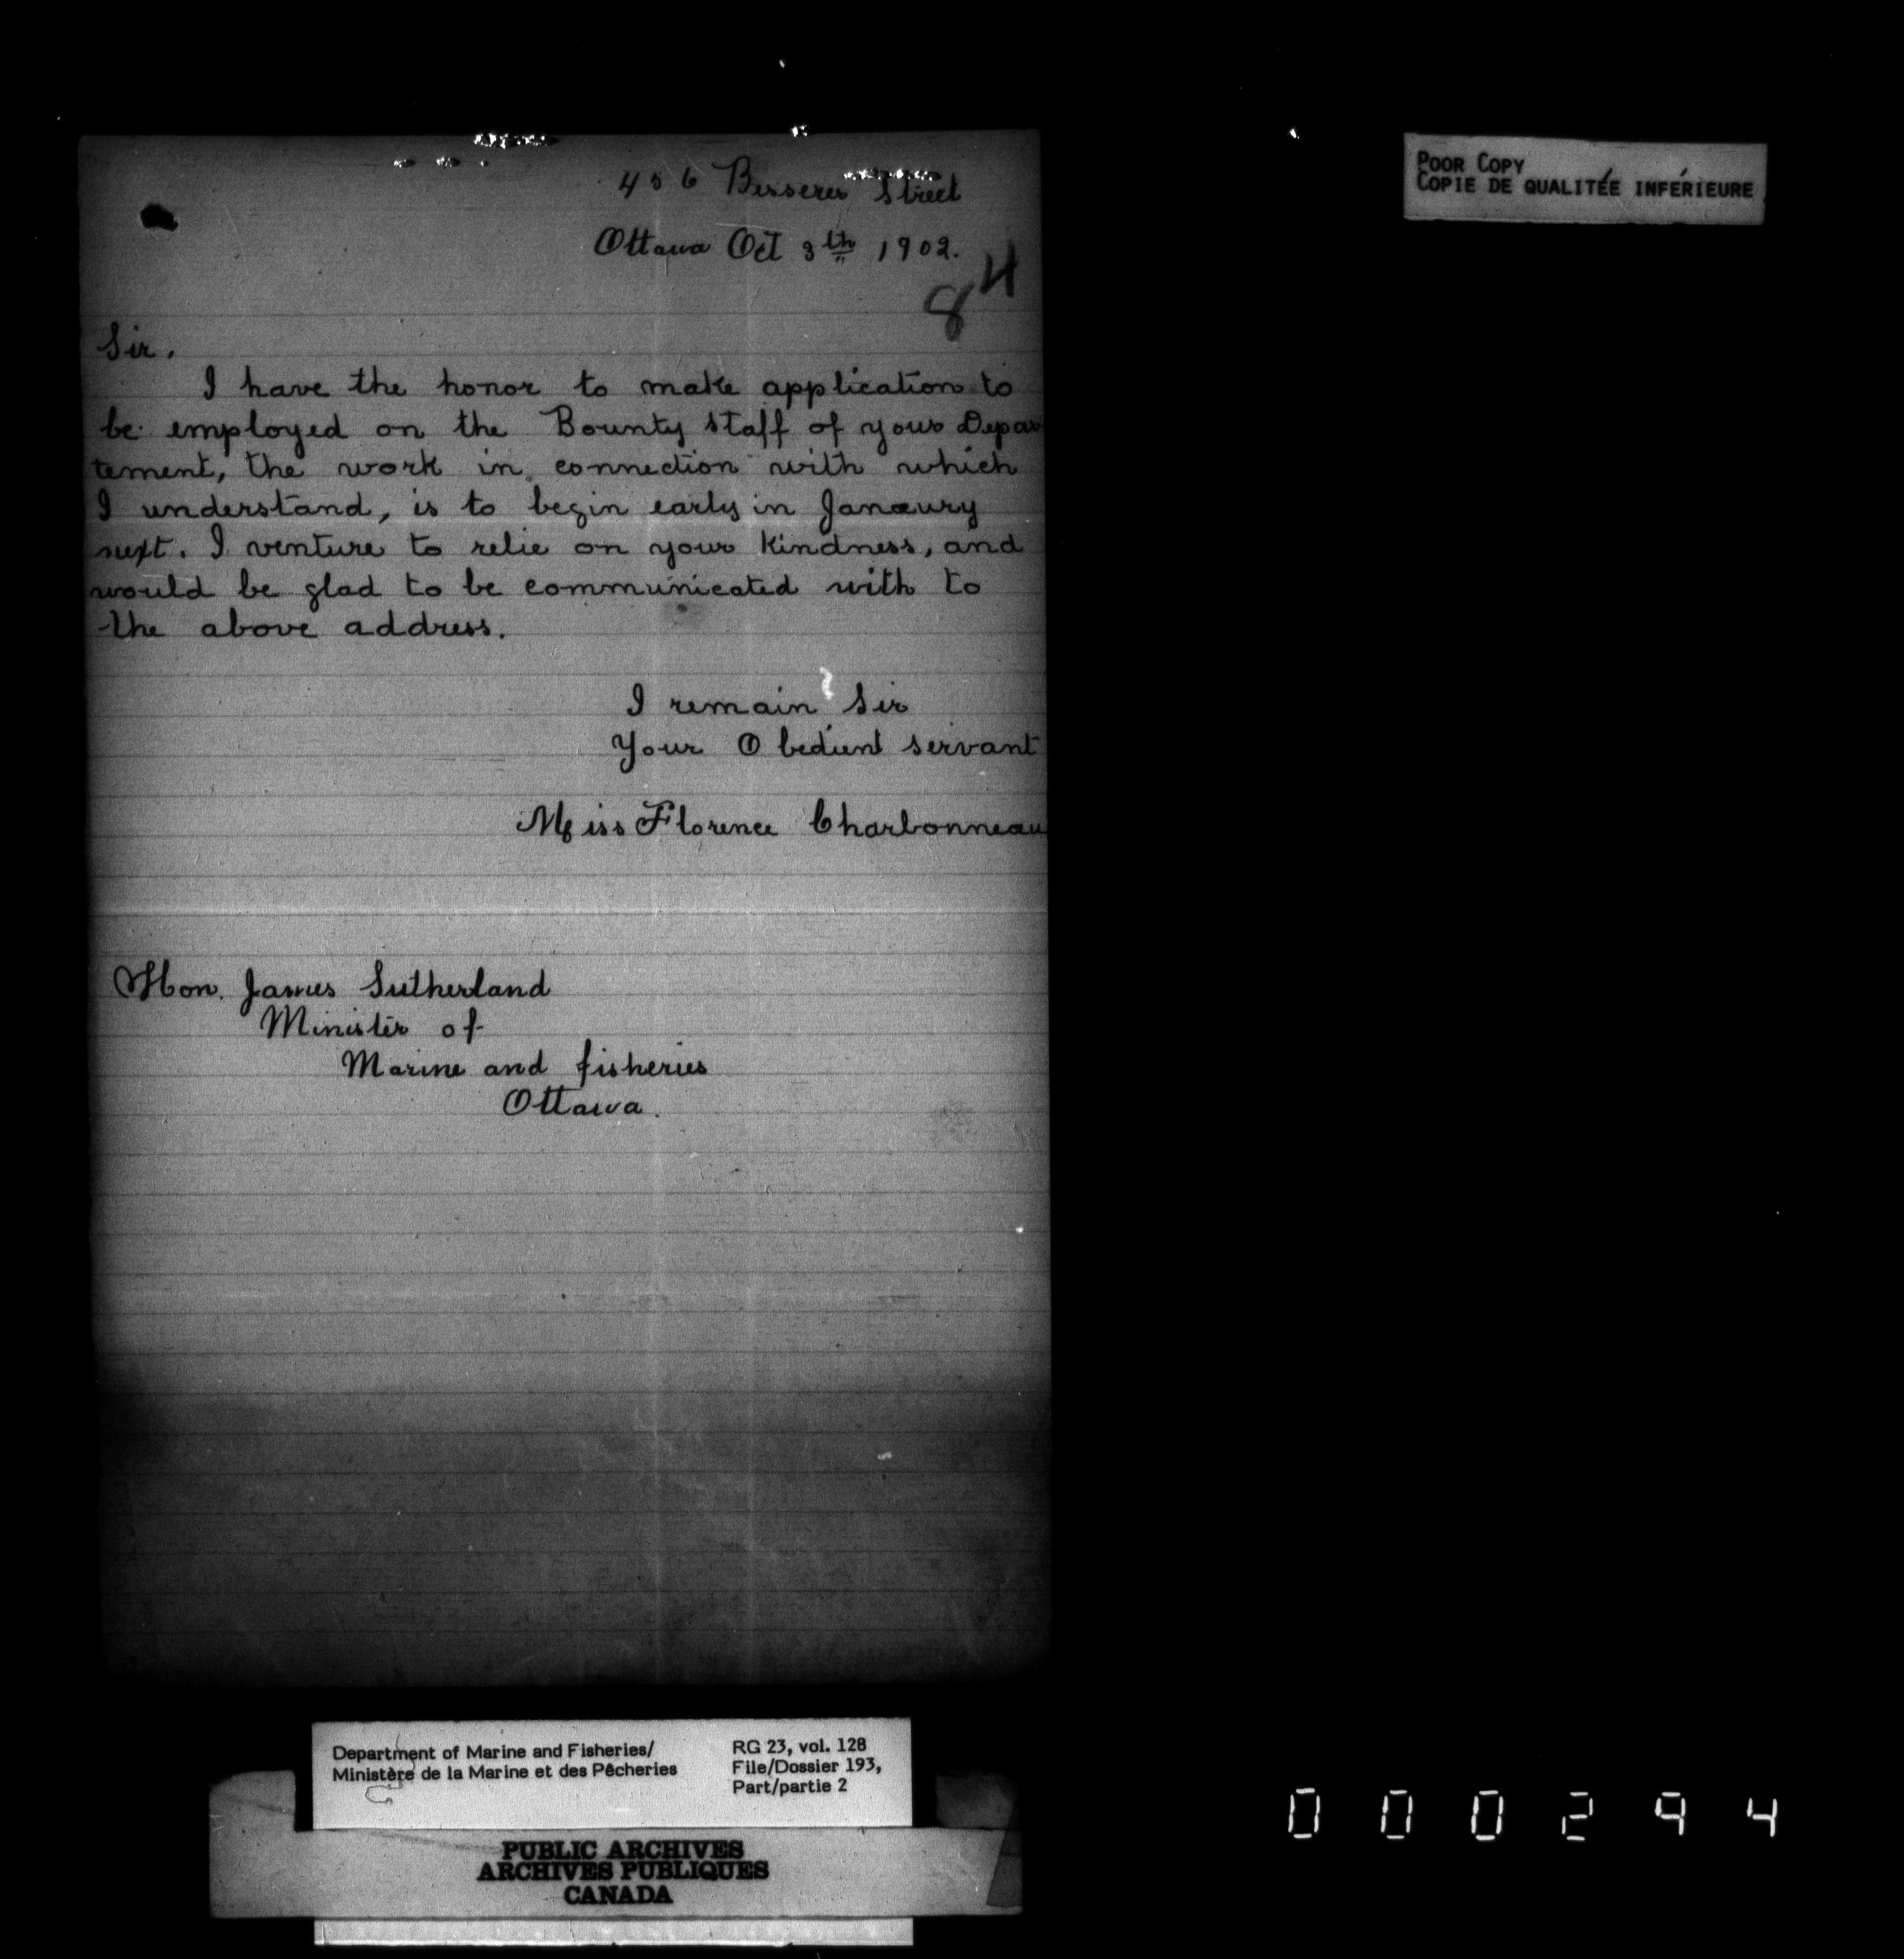 456 Besserer Street
Ottawa Oct 3th 1902.
84
Sir.
I have the honor to make application to
be employed on the Bounty staff of your Depar
tement, the work in connection with which
I understand, is to begin early in Janaury
next. I venture to relie on your Kindness, and
would be glad to be communicated with to
the above address.
I remain Sir
Your Obedient servant
Miss Florence Charbonneau
Hon. James Sutherland
Minister of
Marine and fisheries
Ottawa.
POOR COPY
COPIE DE QUALITÉE INFÉRIEURE
Department of Marine and Fisheries/
Ministère de la Marine et des Pêcheries
RG 23, vol. 128
File/Dossier 193,
Part/partie 2
PUBLIC ARCHIVES
ARCHIVES PUBLIQUES
CANADA
000294